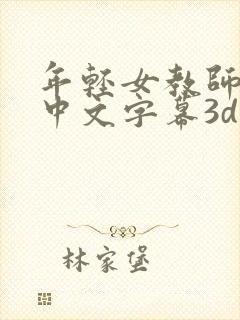 年輕女教師
中文字幕3d
林家堡